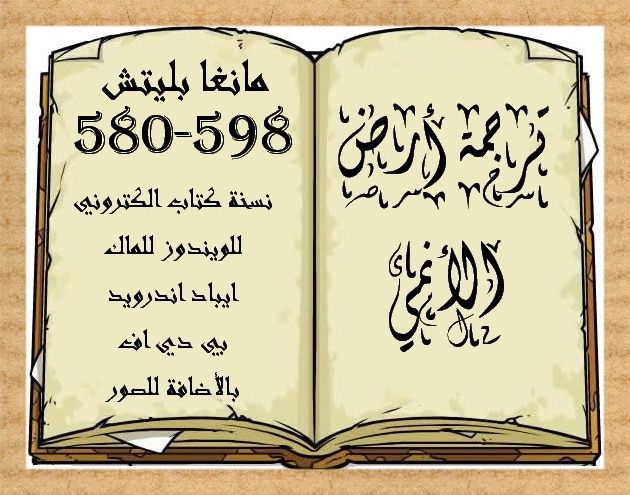 ترجمة أرض
الأنمي
مانغا بليتش
580-598
نسخة كتاب الكتروني
للويندوز للماك
ايباد اندرويد
بي دي اف
بالأضافة للصور